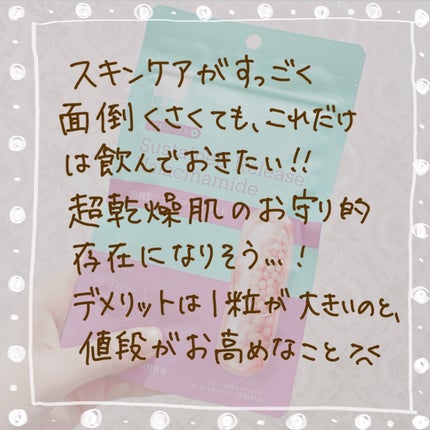 スキンケアがすっごく
面倒くさくても、これだけ
は飲んでおきたい!!
超乾燥肌のお守り的
存在になりそう...!
デメリットは1粒が大きいのと、
値段がお高めなこと
Sustained Release
Niacinamide